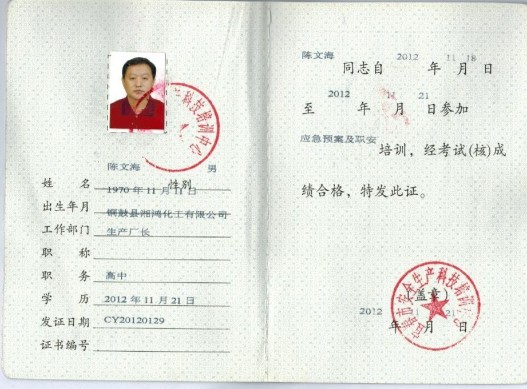 陈文海 男
姓 名 性别
1970 年 11 月 11 日
出生年月
铜鼓县湘鸿化工有限公司
工作部门
生产厂长
职 称
职 务
高中
学 历
2012 年 11 月 21 日
发证日期
CY20120129
证书编号
陈文海 2012 11 18
同志自 年 月 日
2012 11 21
至 年 月 日参加
应急预案及职安
培训，经考试(核)成
绩合格，特发此证。
市安全生产科技培训中心
(盖章)
2012 11 21
年 月 日